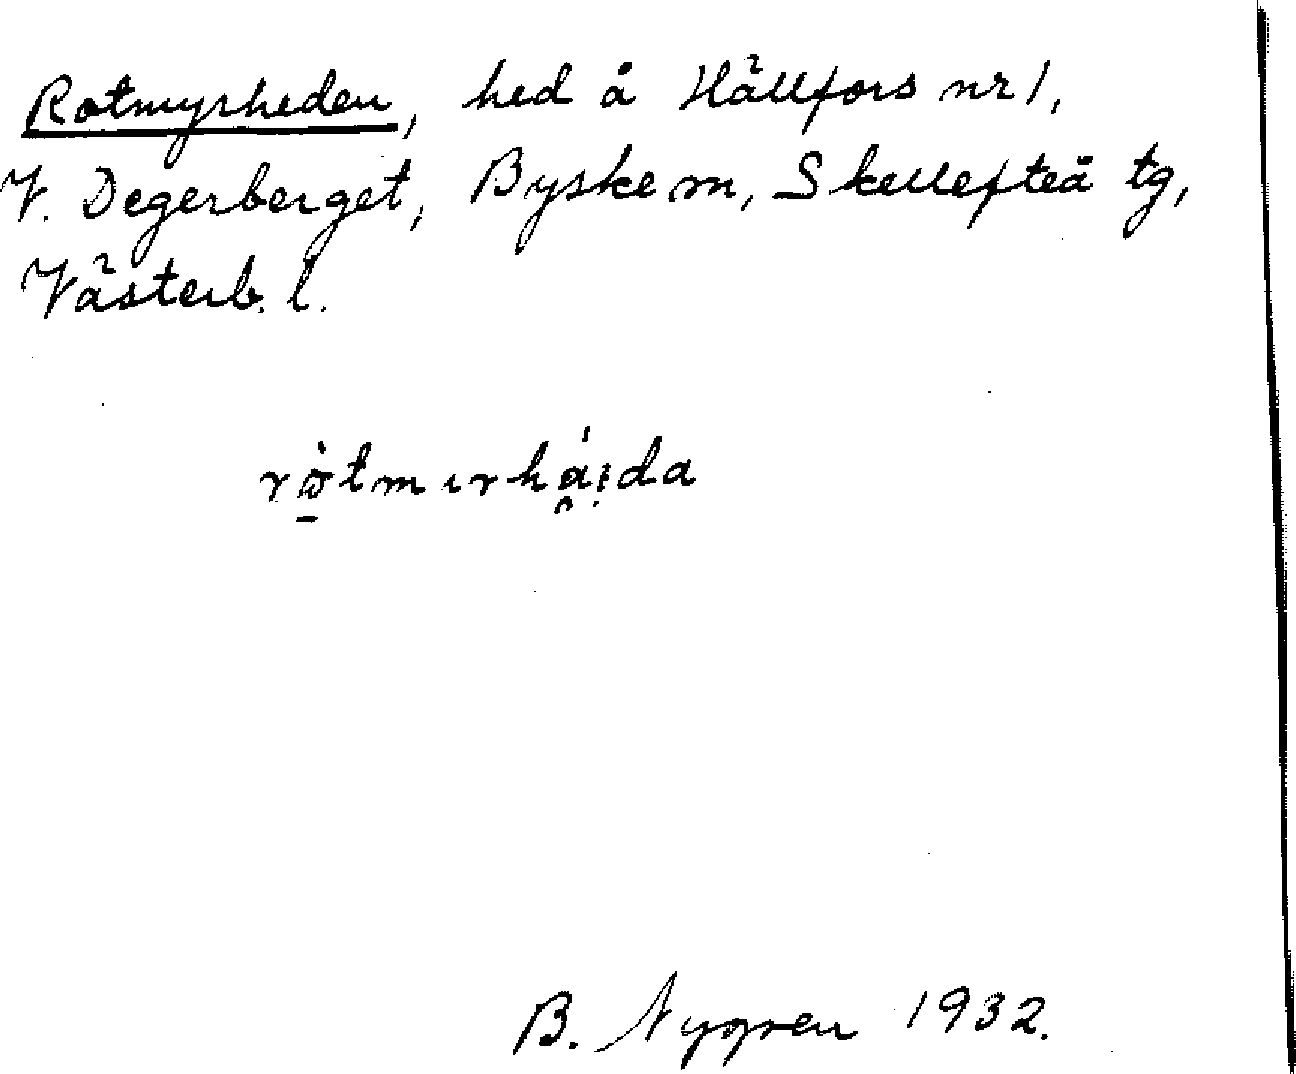 Rotmyrheden, hed å Hällfors nr 1,
V. Degerberget, Byske sn, Skellefteå tg,
Västerb. l.
rò̱tmırhá̯i̤da
B. Nygren 1932.